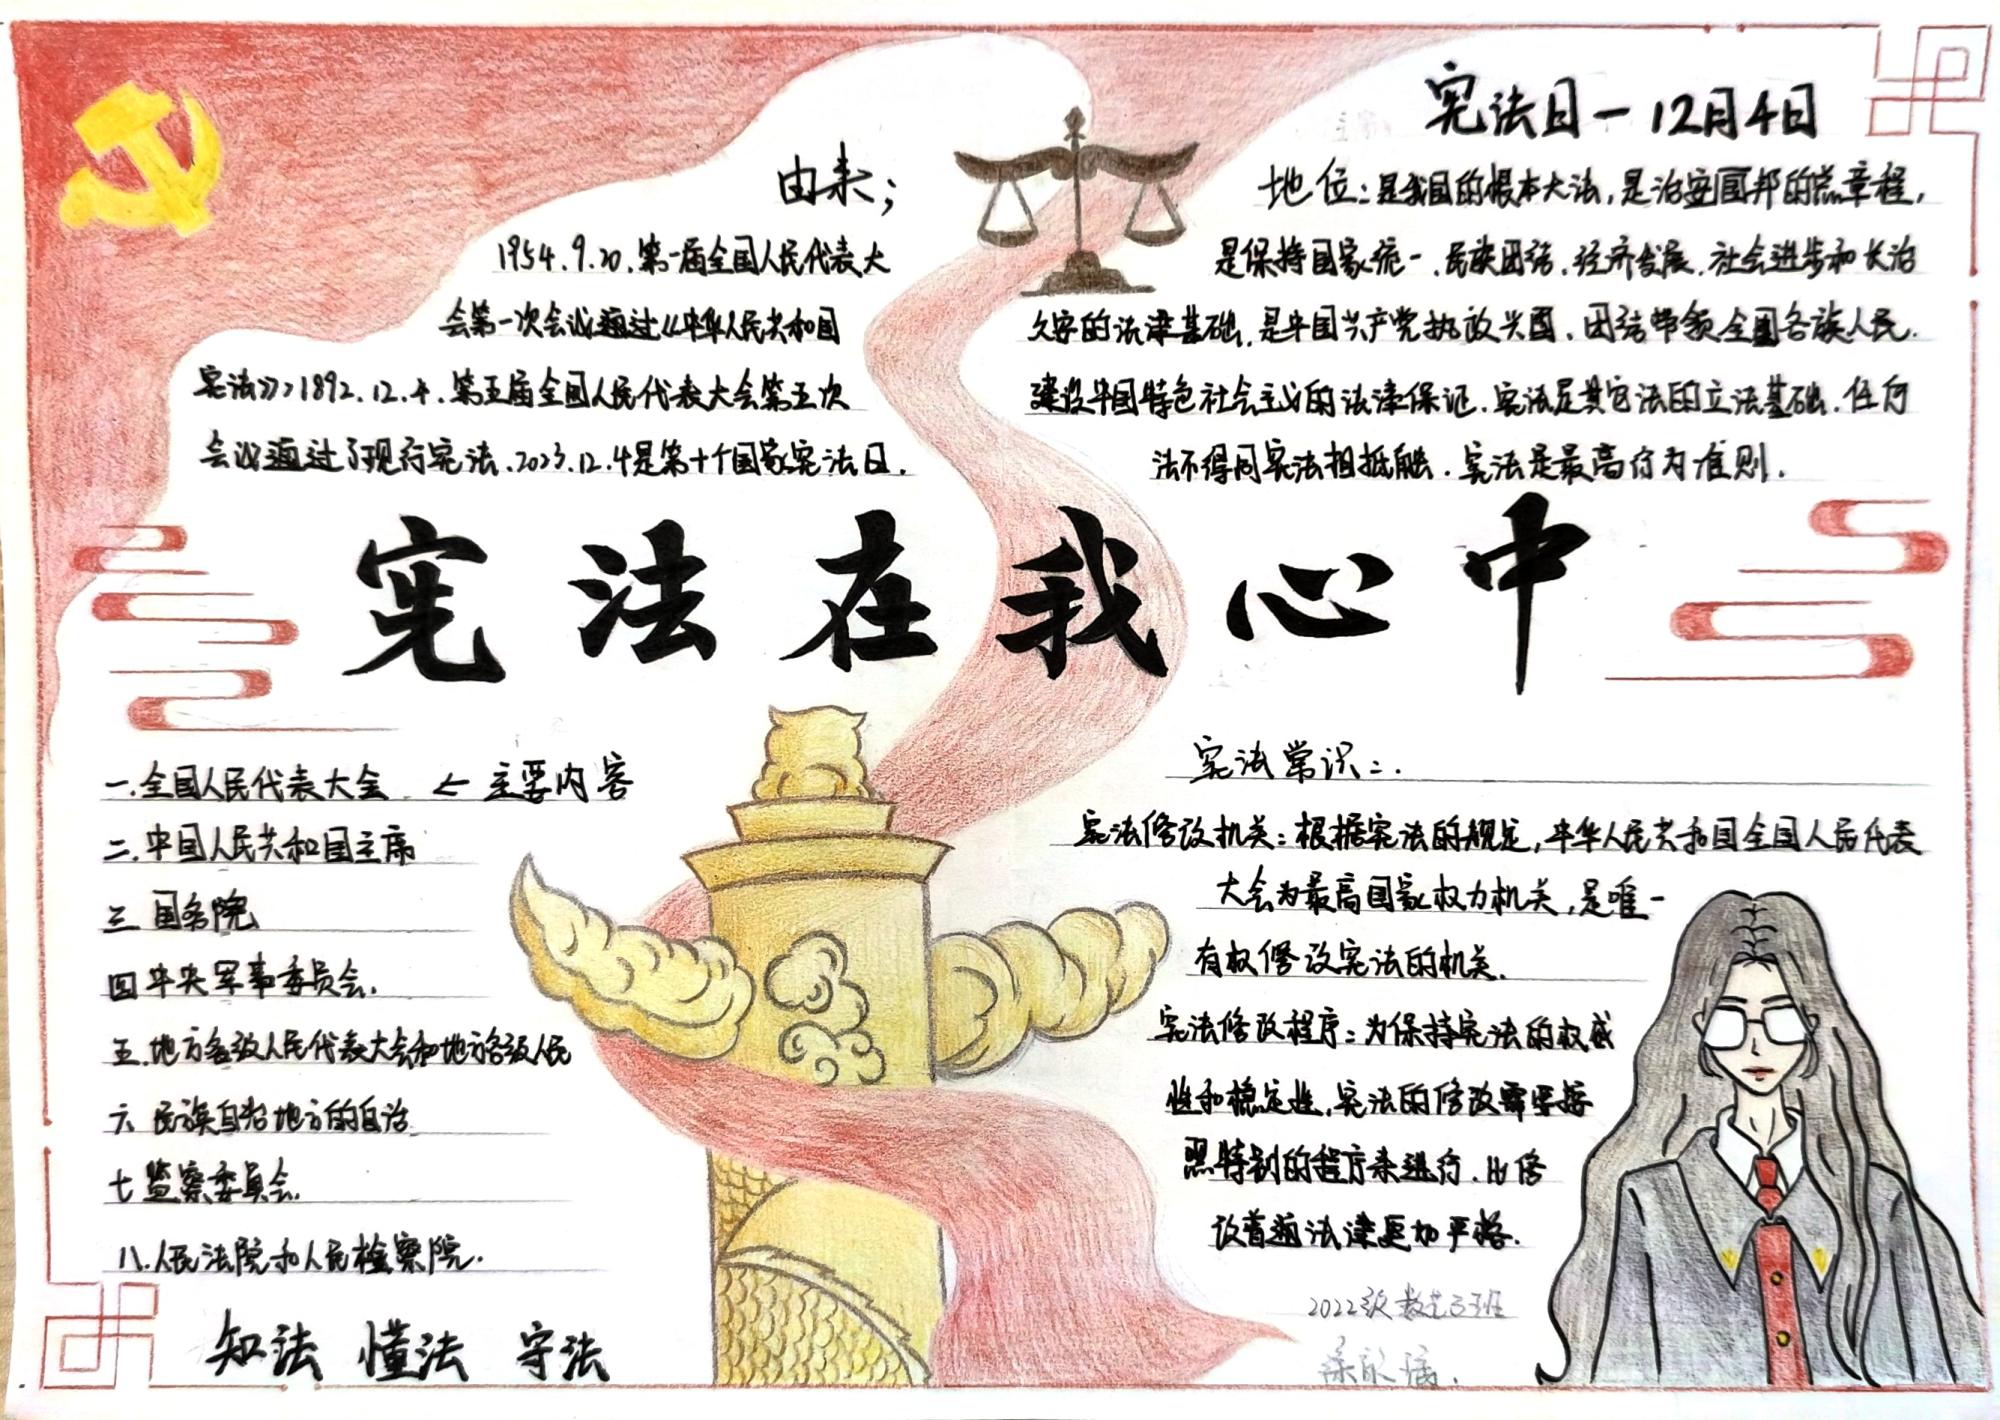 由来;
1954.9.20.第一届全国人民代表大
会第一次会议通过《中华人民共和国
宪法》>1892.12.4.第五届全国人民代表大会第五次
会议通过了现行宪法.2023.12.4是第十个国家宪法日.
宪法日一12月4日
地位:是我国的根本大法,是治安国邦的总章程,
是保持国家统一.民族团结.经济发展.社会进步和长治
久安的法律基础.是中国共产党执政兴国.团结带领全国各族人民.
建设中国特色社会主义的法律保证.宪法是其它法的立法基础.任何
法不得同宪法相抵触.宪法是最高行为准则.
宪法在我心中
一.全国人民代表大会 ← 主要内容
二.中国人民共和国主席
三 国务院
四 中央军事委员会.
五.地方各级人民代表大会和地方各级人民
六 民族自治地方的自治
七 监察委员会.
八.人民法院和人民检察院.
知法 懂法 守法
宪法常识::.
宪法修改机关:根据宪法的规定,中华人民共和国全国人民代表
大会为最高国家权力机关,是唯一
有权修改宪法的机关.
宪法修改程序:为保持宪法的权威
性和稳定性,宪法的修改需要按
照特别的程序来进行.比修
改普通法律更加严格.
2022级数范3班